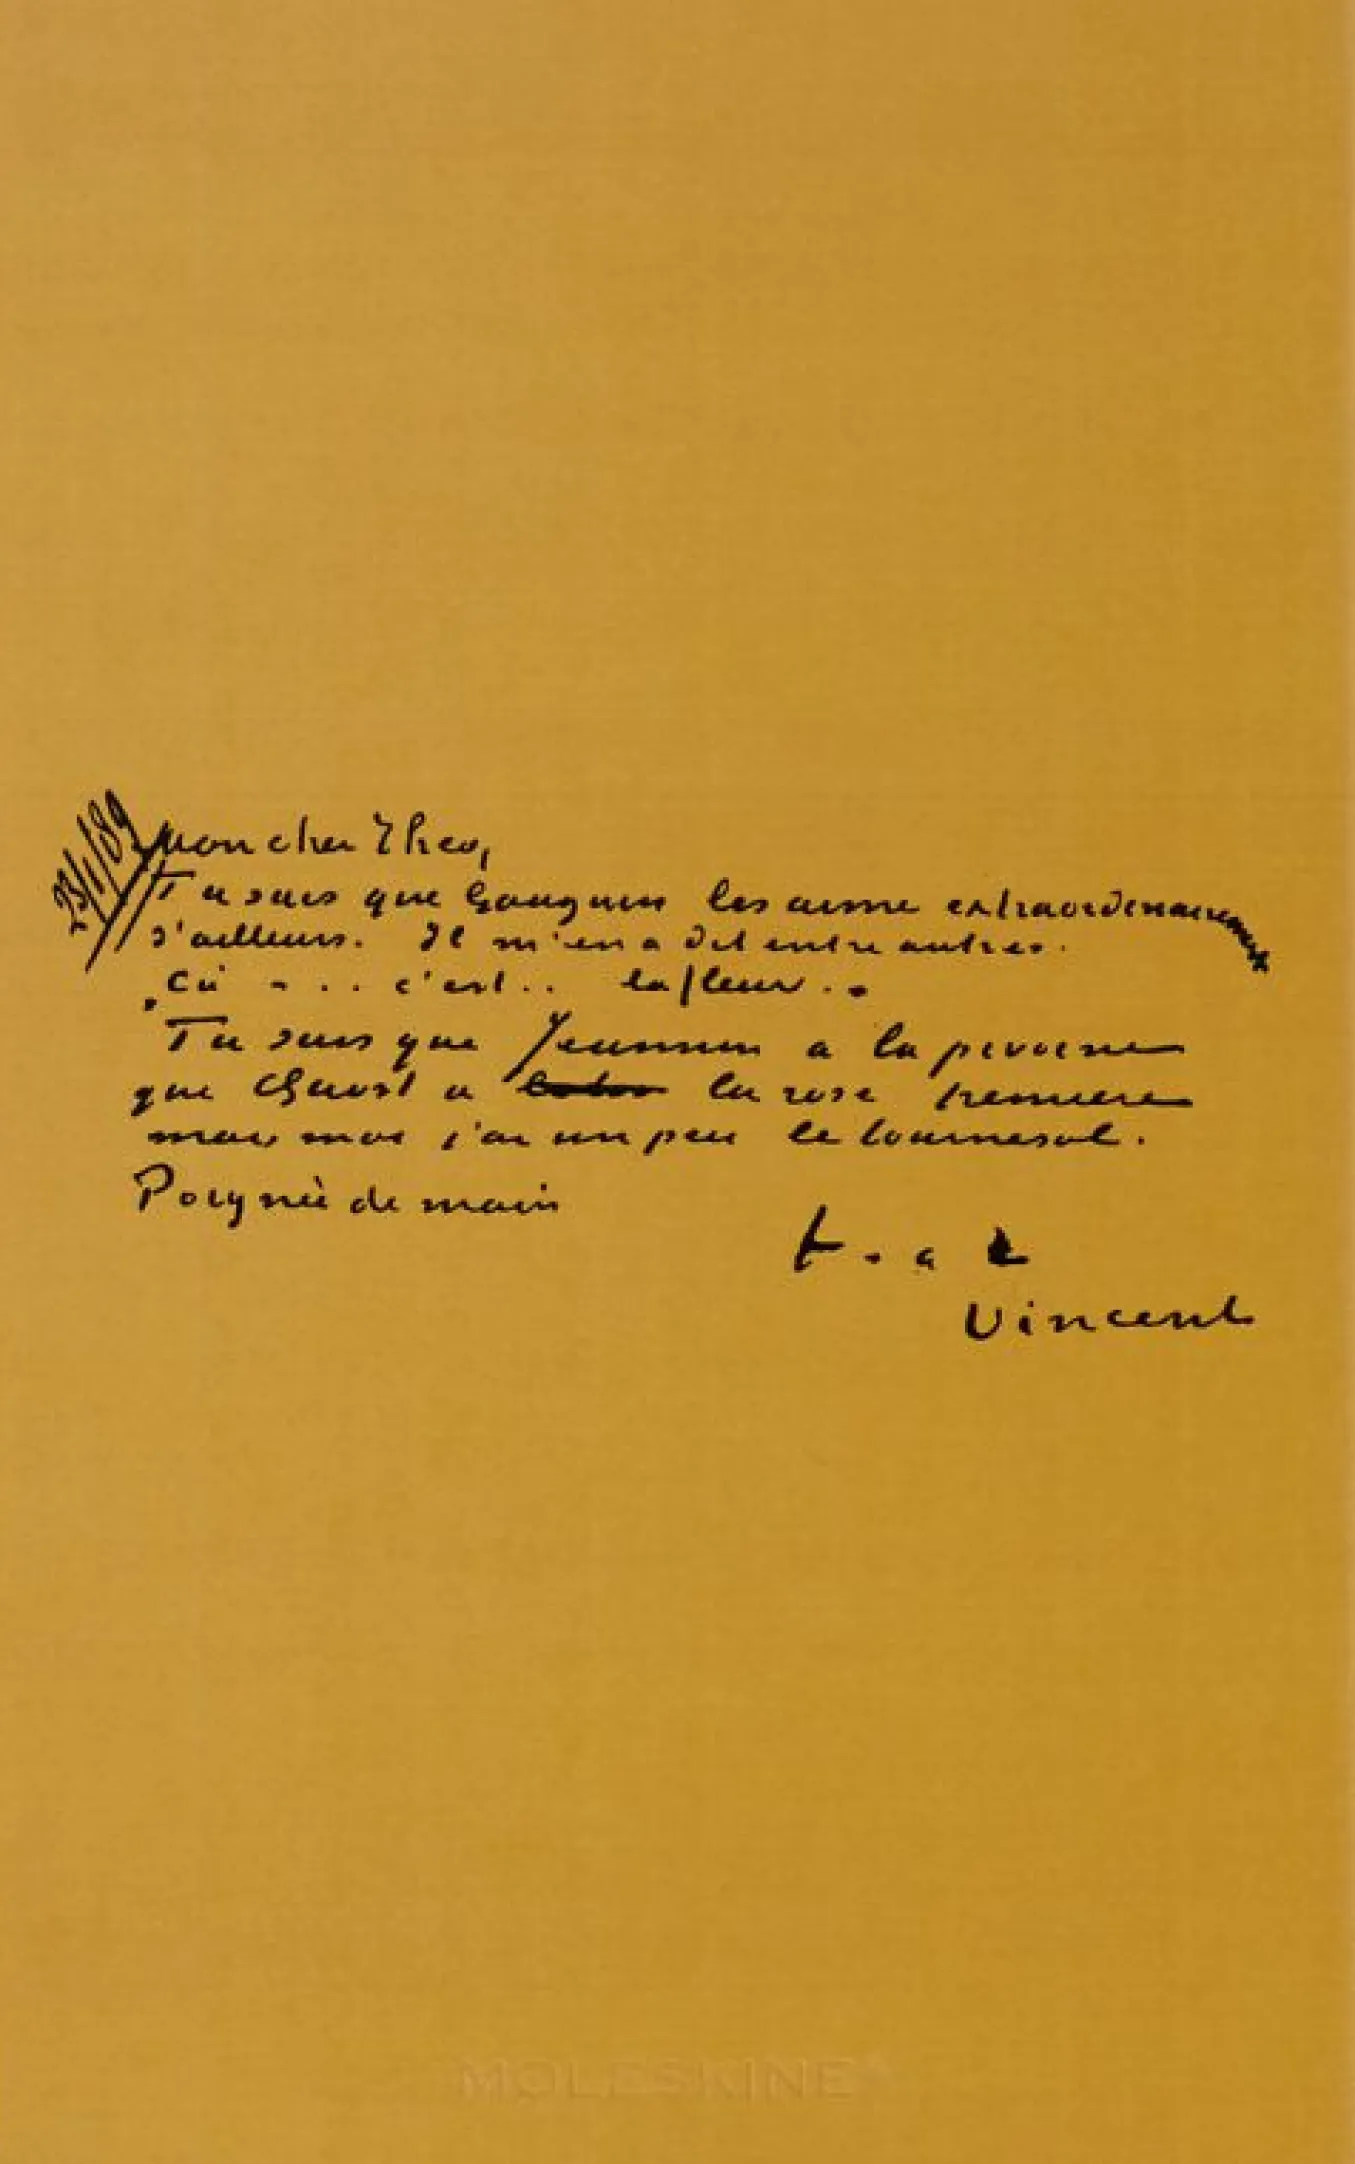 23/1/89
Mon cher Theo,
Tu sais que Gauguin les aime extraordinairement
d'ailleurs. Il m'en a dit entre autres.
„ça - . . c'est . . la fleur.”
Tu sais que Jeannin a la pivoine
que Quost a la rose tremiere
mais moi j'ai un peu le tournesol.
Poignée de main
t. à t.
Vincent
MOLESKINE